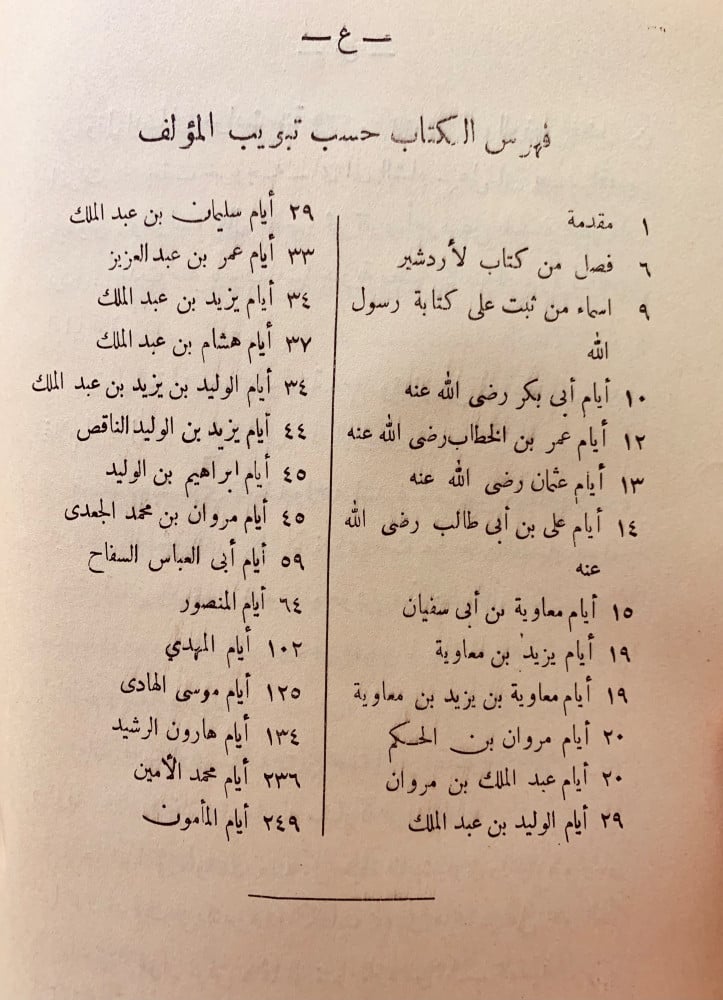 — ع —
فهرس الكتاب حسب تبويب المؤلف
١ مقدمة
٦ فصل من كتاب لأردشير
٩ اسماء من ثبت على كتابة رسول
الله
١٠ أيام أبى بكر رضى الله عنه
١٢ أيام عمر بن الخطاب رضى الله عنه
١٣ أيام عثمان رضى الله عنه
١٤ أيام على بن أبى طالب رضى الله
عنه
١٥ أيام معاوية بن أبى سفيان
١٩ أيام يزيد بن معاوية
١٩ أيام معاوية بن يزيد بن معاوية
٢٠ أيام مروان بن الحكم
٢٠ أيام عبد الملك بن مروان
٢٩ أيام الوليد بن عبد الملك
٢٩ أيام سليمان بن عبد الملك
٣٣ أيام عمر بن عبد العزيز
٣٤ أيام يزيد بن عبد الملك
٣٧ أيام هشام بن عبد الملك
٣٤ أيام الوليد بن يزيد بن عبد الملك
٤٤ أيام يزيد بن الوليد الناقص
٤٥ أيام ابراهيم بن الوليد
٤٥ أيام مروان بن محمد الجعدى
٥٩ أيام أبى العباس السفاح
٦٤ أيام المنصور
١٠٢ أيام المهدي
١٢٥ أيام موسى الهادى
١٣٤ أيام هارون الرشيد
٢٣٦ أيام محمد الأمين
٢٤٩ أيام المأمون